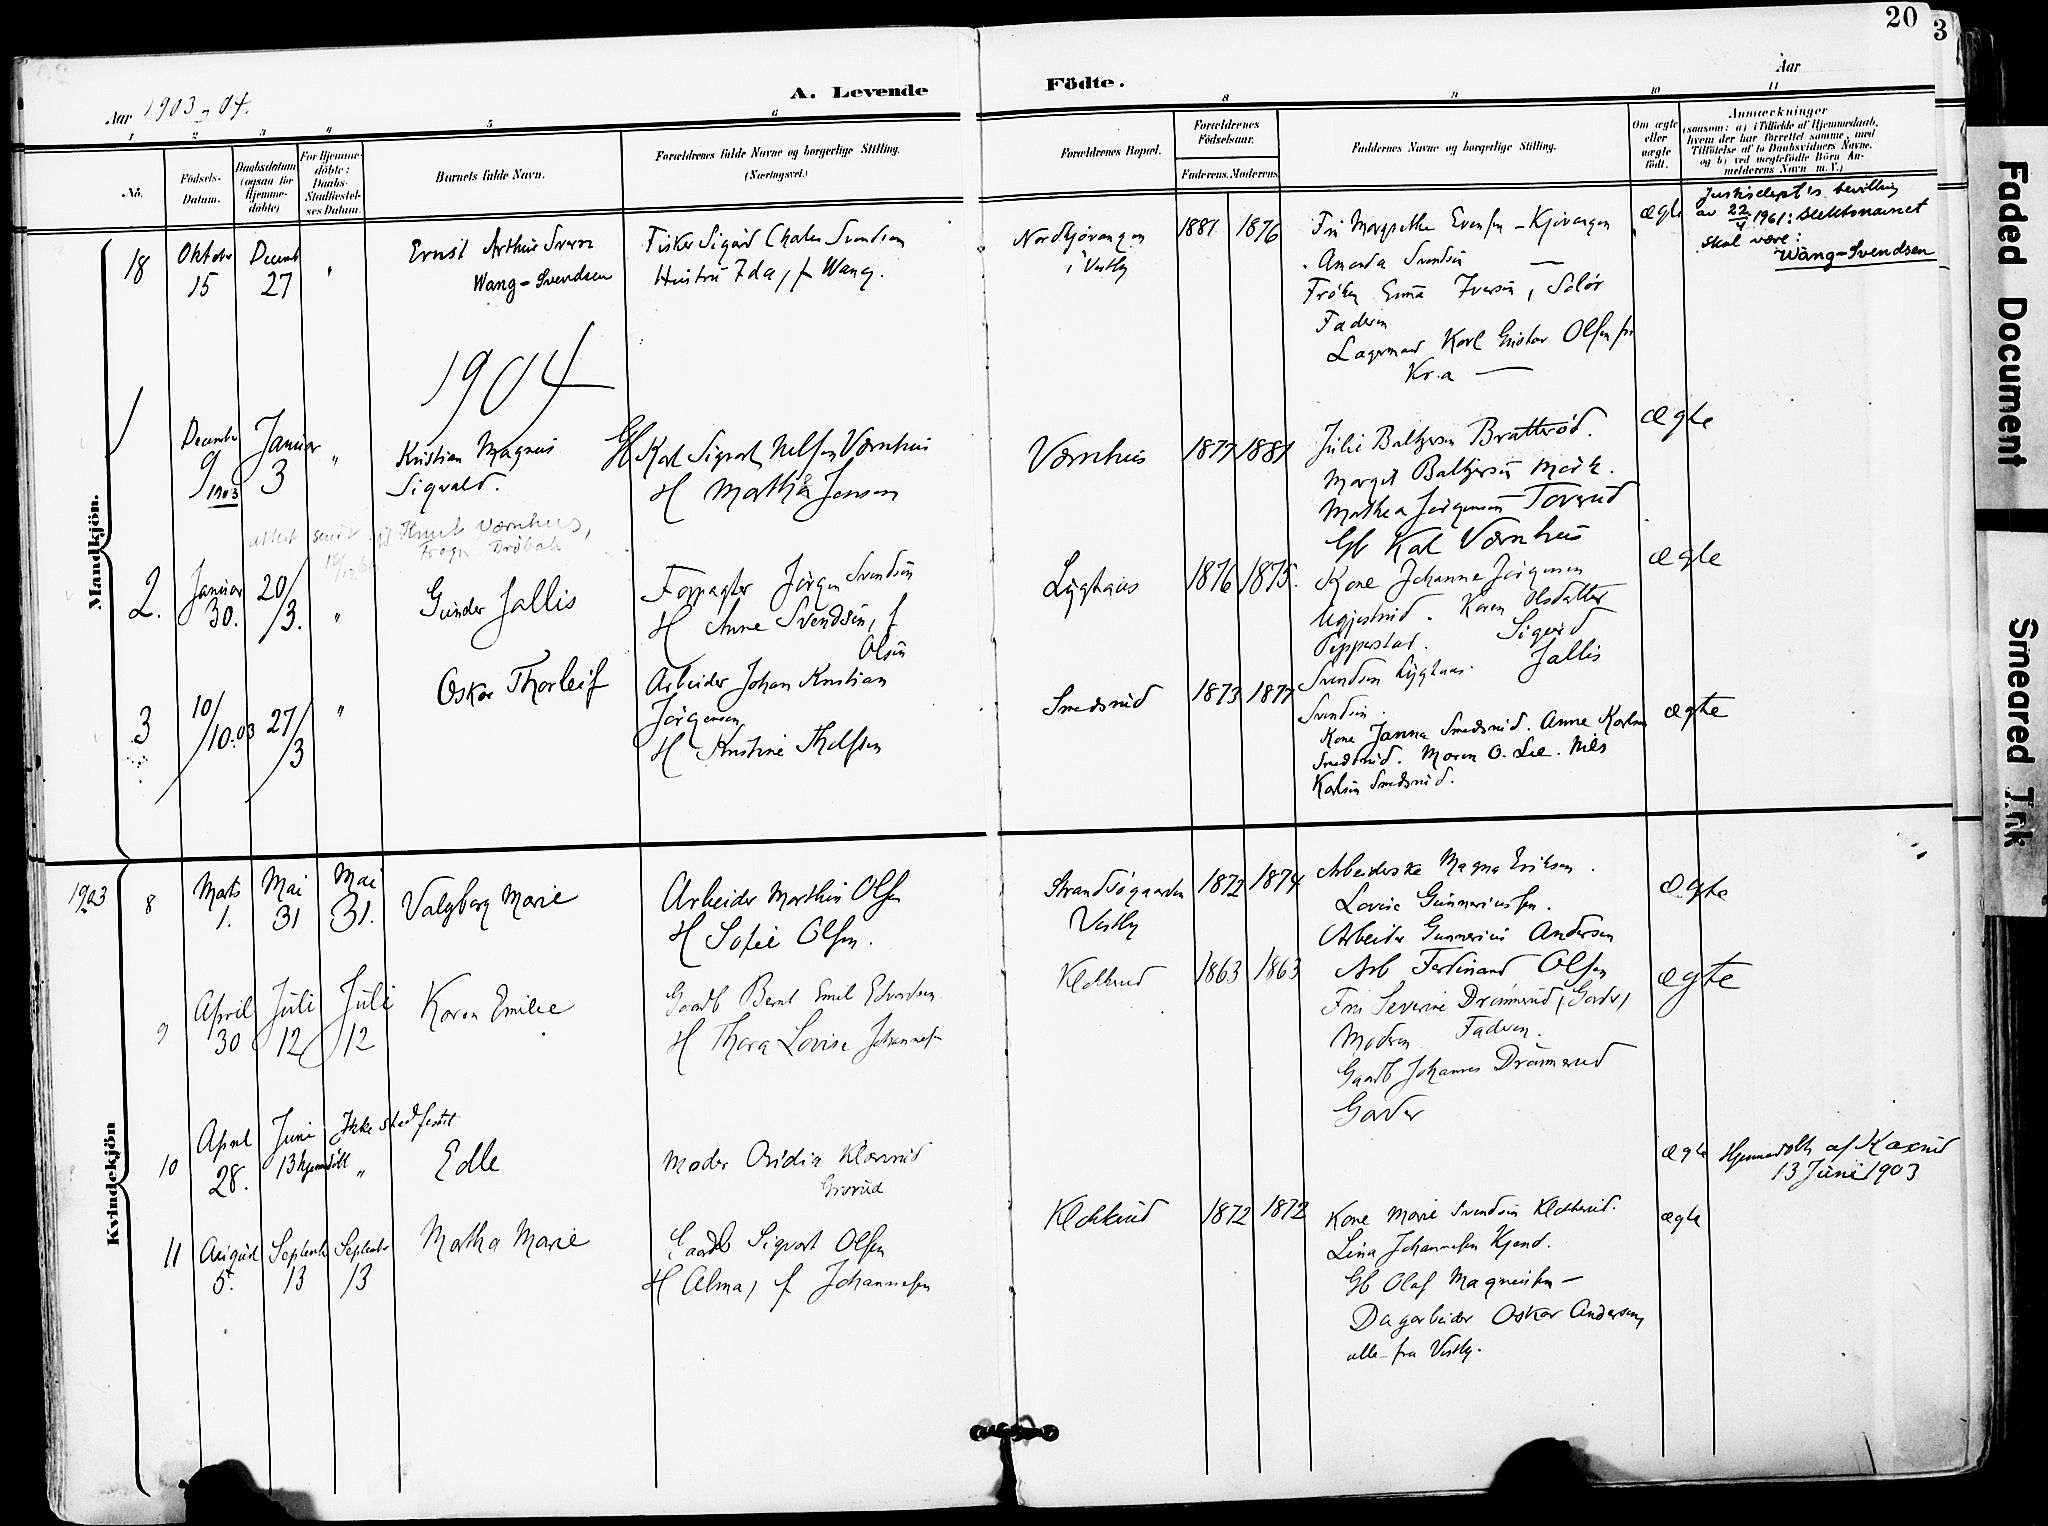 20
3
Aar 1903-04.
A. Levende
Födte.
Aar
1
2
3
4
5
6
8
9
10
11
No.
Födsels-
Datum.
Daabsdatum
(ogsaa for
Hjemme-
döbte)
For Hjemme-
döbte:
Daabs-
Stadfæstel-
ses Datum.
Barnets fulde Navn.
Forældrenes fulde Navne og borgerlige Stilling.
(Næringsvei.)
Forældrenes Bopæl.
Forældrenes
Födselsaar.
Faderens. Moderens.
Faddernes Navne og borgerlige Stilling.
Om ægte
eller
uægte
født.
Anmærkninger
(saasom: a) i Tilfælde af Hjemmedaab,
hvem der har forrettet samme, med
Tilföielse af to Daabsvidners Navne,
og b) ved uægtefödte Börn An-
melderens Navn m. V.)
Mandkjön.
18
Oktober
15
Decemb
27
"
Ernst Arthur Sverre
Wang-Svendsen
Fisker Sigurd Charles Svendsen
Hustru Ida, f Wang.
i Vestby
1881
1876
Amanda Svendsen
Fröken Emma Iversen, Solör
Faderen
Lagermand Karl Gustav Olsen fra
Kr.a
ægte
Justisdept's bevilling
av 22/4 1961: Slektsnavnet
skal være:
Wang-Svendsen
1904
1
December
9
1903
Januar
3
"
Kristian Magnus
Sigvald.
Gb Karl Sigvart Nilsen Værnhus
H Marthea Jensen
Værnhus
1877
1881
Julie Baltzersen Bratteröd.
Margit Baltzersen Mork.
Mathea Jörgensen Toverud
Gb Karl Værnhus
ægte
attest sendt til Knut Værnhus,
Frogn Dröbak
2.
Januar
30.
20/3.
"
Gunder Jallis
Forpagter Jörgen Svendsen
H Anne Svendsen, f
Olsen
Lyghaus
1876
1875.
Kone Johanne Jörgensen
Karen Olsdatter
Pepperstad.
Sigurd
Jallis
Svendsen Lyghaus.
Svendsen.
ægte
3
10/10.03
27/3
"
Oskar Thorleif
Arbeider Johan Kristian
Jörgensen
H Kristine Thelfsen
Smedsrud
1873
1877
Kone Janna Smedsrud. Anne Karlsen
Smedsrud. Maren O. Lee. Nils
Karlsen Smedsrud.
ægte
Kvindekjön
1903
8
Marts
1.
Mai
31
Mai
31.
Valgborg Marie
Arbeider Marthin Olsen
H Sofie Olsen.
Vestby
1872
1874
Arbeiderske Magna Eriksen.
Lovise Gunneriussen.
Arbeider Gunnerius Andersen
ægte
9
April
30
Juli
12
Juli
12
Karen Emilie
Gaardb Bernt Emil Edvardsen
H Thora Lovise Johannesen
1863
1863
Arb Ferdinand Olsen
Fru Severine Drömmerud, (Garder)
Moderen Faderen.
Gaardb Johannes Drömmerud
Garder
ægte
10
April
28.
Juni
13 hjemdöbt
Ikke stadfæstet
"
Edle
Moder Ovidia
ægte
Hjemmedöbt af
13 Juni 1903
11
August
5.
September
13
September
13
Martha Marie
Gaardb Sigvart Olsen
H Alma, f Johannesen
1872
1872
Kone Marie Svendsen
Lina Johannesen
Gb Olaf Magnussen -
Dagarbeider Oskar Andersen,
alle fra Vestby.
ægte
Faded Document
Smeared Ink